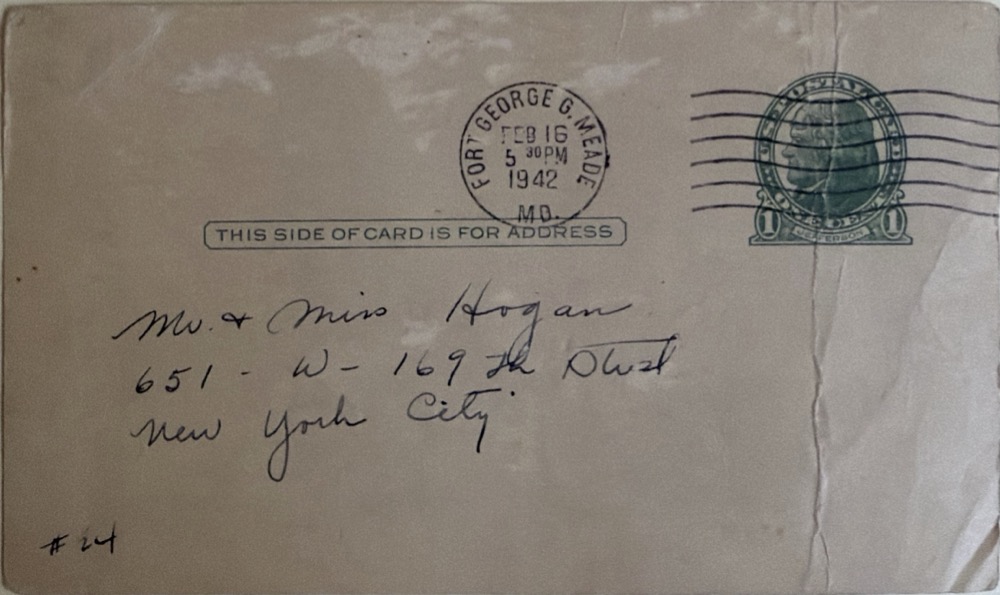 FORT GEORGE G. MEADE
FEB 16
5 30PM
1942
MD.
U.S. POSTAL CARD
1 1
JEFFERSON
THIS SIDE OF CARD IS FOR ADDRESS
Mr. & Miss Hogan
651 - W - 169 th Street
New York City
# 24